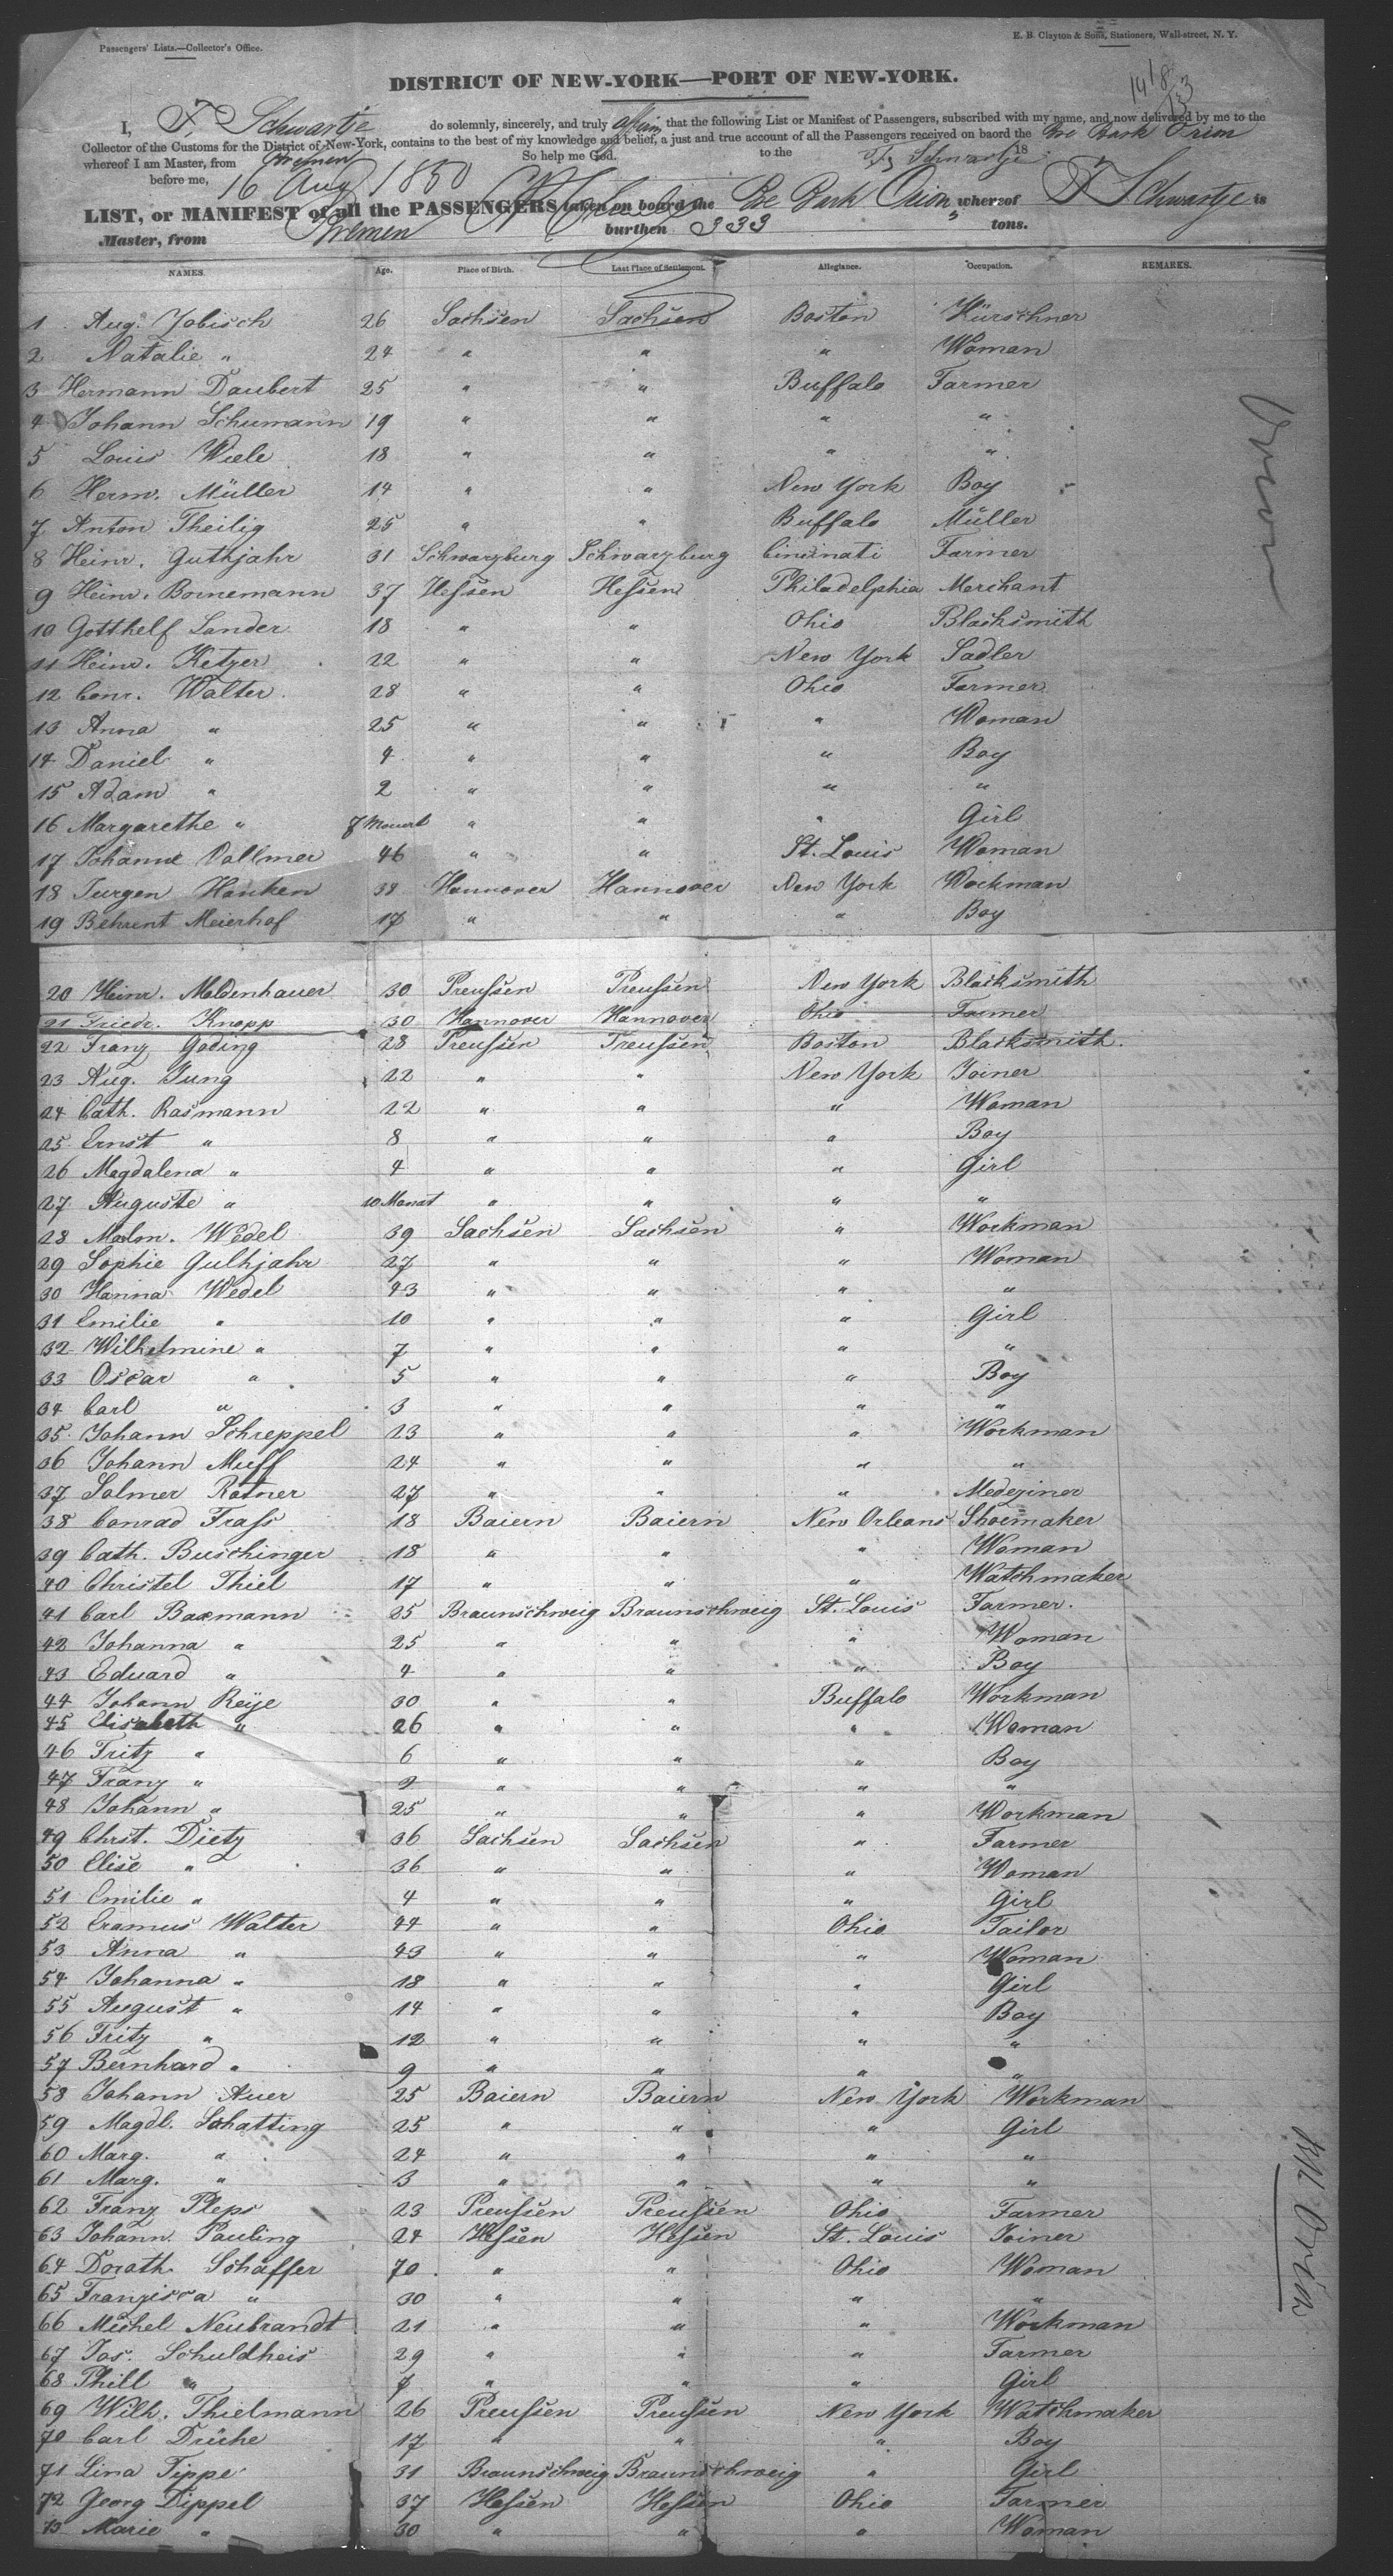 Passengers' Lists.—Collector's Office.
E. B. Clayton & Sons, Stationers, Wall-street, N. Y.
DISTRICT OF NEW-YORK—PORT OF NEW-YORK.
I, F. Schwartje do solemnly, sincerely, and truly affirm that the following List or Manifest of Passengers, subscribed with my name, and now delivered by me to the
Collector of the Customs for the District of New-York, contains to the best of my knowledge and belief, a just and true account of all the Passengers received on baord the Bre Bark Orion
whereof I am Master, from Bremen So help me God. to the 18
before me, 16 Aug 1850 F. Schwartje
LIST, or MANIFEST of all the PASSENGERS taken on board the Bre Bark Orion whereof F. Schwartje is
Master, from Bremen burthen 333 tons.
NAMES. Age. Place of Birth. Last Place of Settlement. Allegiance. Occupation. REMARKS.
1 Aug. Jobisch 26 Sachsen Sachsen Boston Kürschner
2 Natalie " 24 " " " Woman
3 Hermann Daubert 25 " " Buffalo Farmer
4 Johann Schumann 19 " " " "
5 Louis Wiele 18 " " " "
6 Herm. Müller 14 " " New York Boy
7 Anton Theilig 25 " " Buffalo Müller
8 Heinr. Guthjahr 31 Schwarzburg Schwarzburg Cincinati Farmer
9 Heinr. Bornemann 37 Hessen Hessen Philadelphia Merchant
10 Gotthelf Sander 18 " " Ohio Blacksmith
11 Heinr. Ketzer 22 " " New York Sadler
12 Conr. Walter 28 " " Ohio Farmer
13 Anna " 25 " " " Woman
14 Daniel " 4 " " " Boy
15 Adam " 2 " " " "
16 Margarethe " 8 " " " Girl
17 Johanne Vollmer 46 " " St. Louis Woman
18 Jurgen Hanken 38 Hannover Hannover New York Workman
19 Behrent Meierhof 17 " " " Boy
20 Heinr. Moldenhauer 30 Preussen Preussen New York Blacksmith
21 Friedr. Knopp 30 Hannover Hannover Ohio Farmer
22 Franz Goding 28 Preussen Preussen Boston Blacksmith.
23 Aug. Jung 22 " " New York Joiner
24 Cath. Rasmann 22 " " " Woman
25 Ernst " 8 " " " Boy
26 Magdalena " 4 " " " Girl
27 Auguste " 10 Monat " " " "
28 Wedel 39 Sachsen Sachsen " Workman
29 Sophie Guthjahr 27 " " " Woman
30 Hanna Wedel 43 " " " "
31 Emilie " 10 " " " Girl
32 Wilhelmine " 7 " " " "
33 Oscar " 5 " " " Boy
34 Carl " 3 " " " "
35 Johann Schreppel 23 " " " Workman
36 Johann Muff 24 " " " "
37 Salmer Ratner 27 " " " Medeziner
38 Conrad Frass 18 Baiern Baiern New Orleans Shoemaker
39 Cath. Buschinger 18 " " " Woman
40 Christel Thiel 17 " " " Watchmaker
41 Carl Baxmann 25 Braunschweig Braunschweig St. Louis Farmer.
42 Johanna " 25 " " " Woman
43 Eduard " 4 " " " Boy
44 Johann Reije 30 " " Buffalo Workman
45 Elisabeth " 26 " " " Woman
46 Fritz " 6 " " " Boy
47 Franz " 2 " " " "
48 Johann " 25 " " " Workman
49 Christ. Dietz 36 Sachsen Sachsen " Farmer
50 Elise " 36 " " " Woman
51 Emilie " 4 " " " Girl
52 Eramus Walter 44 " " Ohio Tailor
53 Anna " 43 " " " Woman
54 Johanna " 18 " " " Girl
55 August " 14 " " " Boy
56 Fritz " 12 " " " "
57 Bernhard " 9 " " " "
58 Johann Auer 25 Baiern Baiern New York Workman
59 Magdl. Schatting 25 " " " Girl
60 Marg. " 24 " " " "
61 Marg. " 3 " " " "
62 Franz Pleps 23 Preussen Preussen Ohio Farmer
63 Johann Pauling 24 Hessen Hessen St. Louis Joiner
64 Dorath. Schäffer 70 " " Ohio Woman
65 Franzisca " 30 " " " "
66 Michel Neubrandt 21 " " " Workman
67 Jos. Schuldheis 29 " " " Farmer
68 Phill " 7 " " " Girl
69 Wilh. Thielmann 26 Preussen Preussen New York Watchmaker
70 Carl Drühe 17 " " " Boy
71 Lina Tippe 31 Braunschweig Braunschweig " Girl
72 Georg Dippel 37 Hessen Hessen Ohio Farmer
73 Marie " 30 " " " Woman